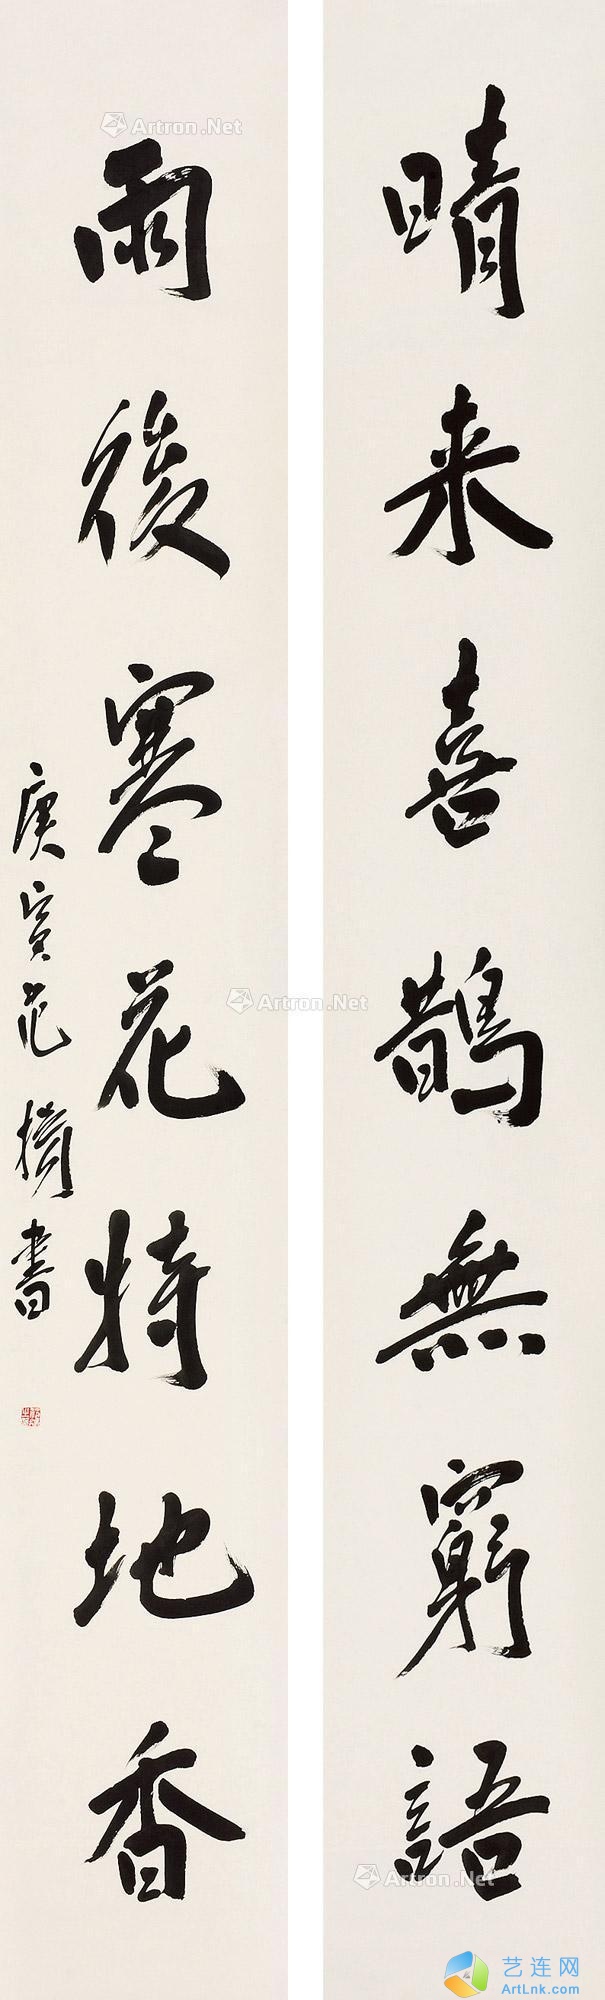 晴来喜鹊無窮語
雨後寒花特地香
庚寅范擴書
Artron.Net
Artron.Net
Artron.Net
艺连网
ArtLnk.com